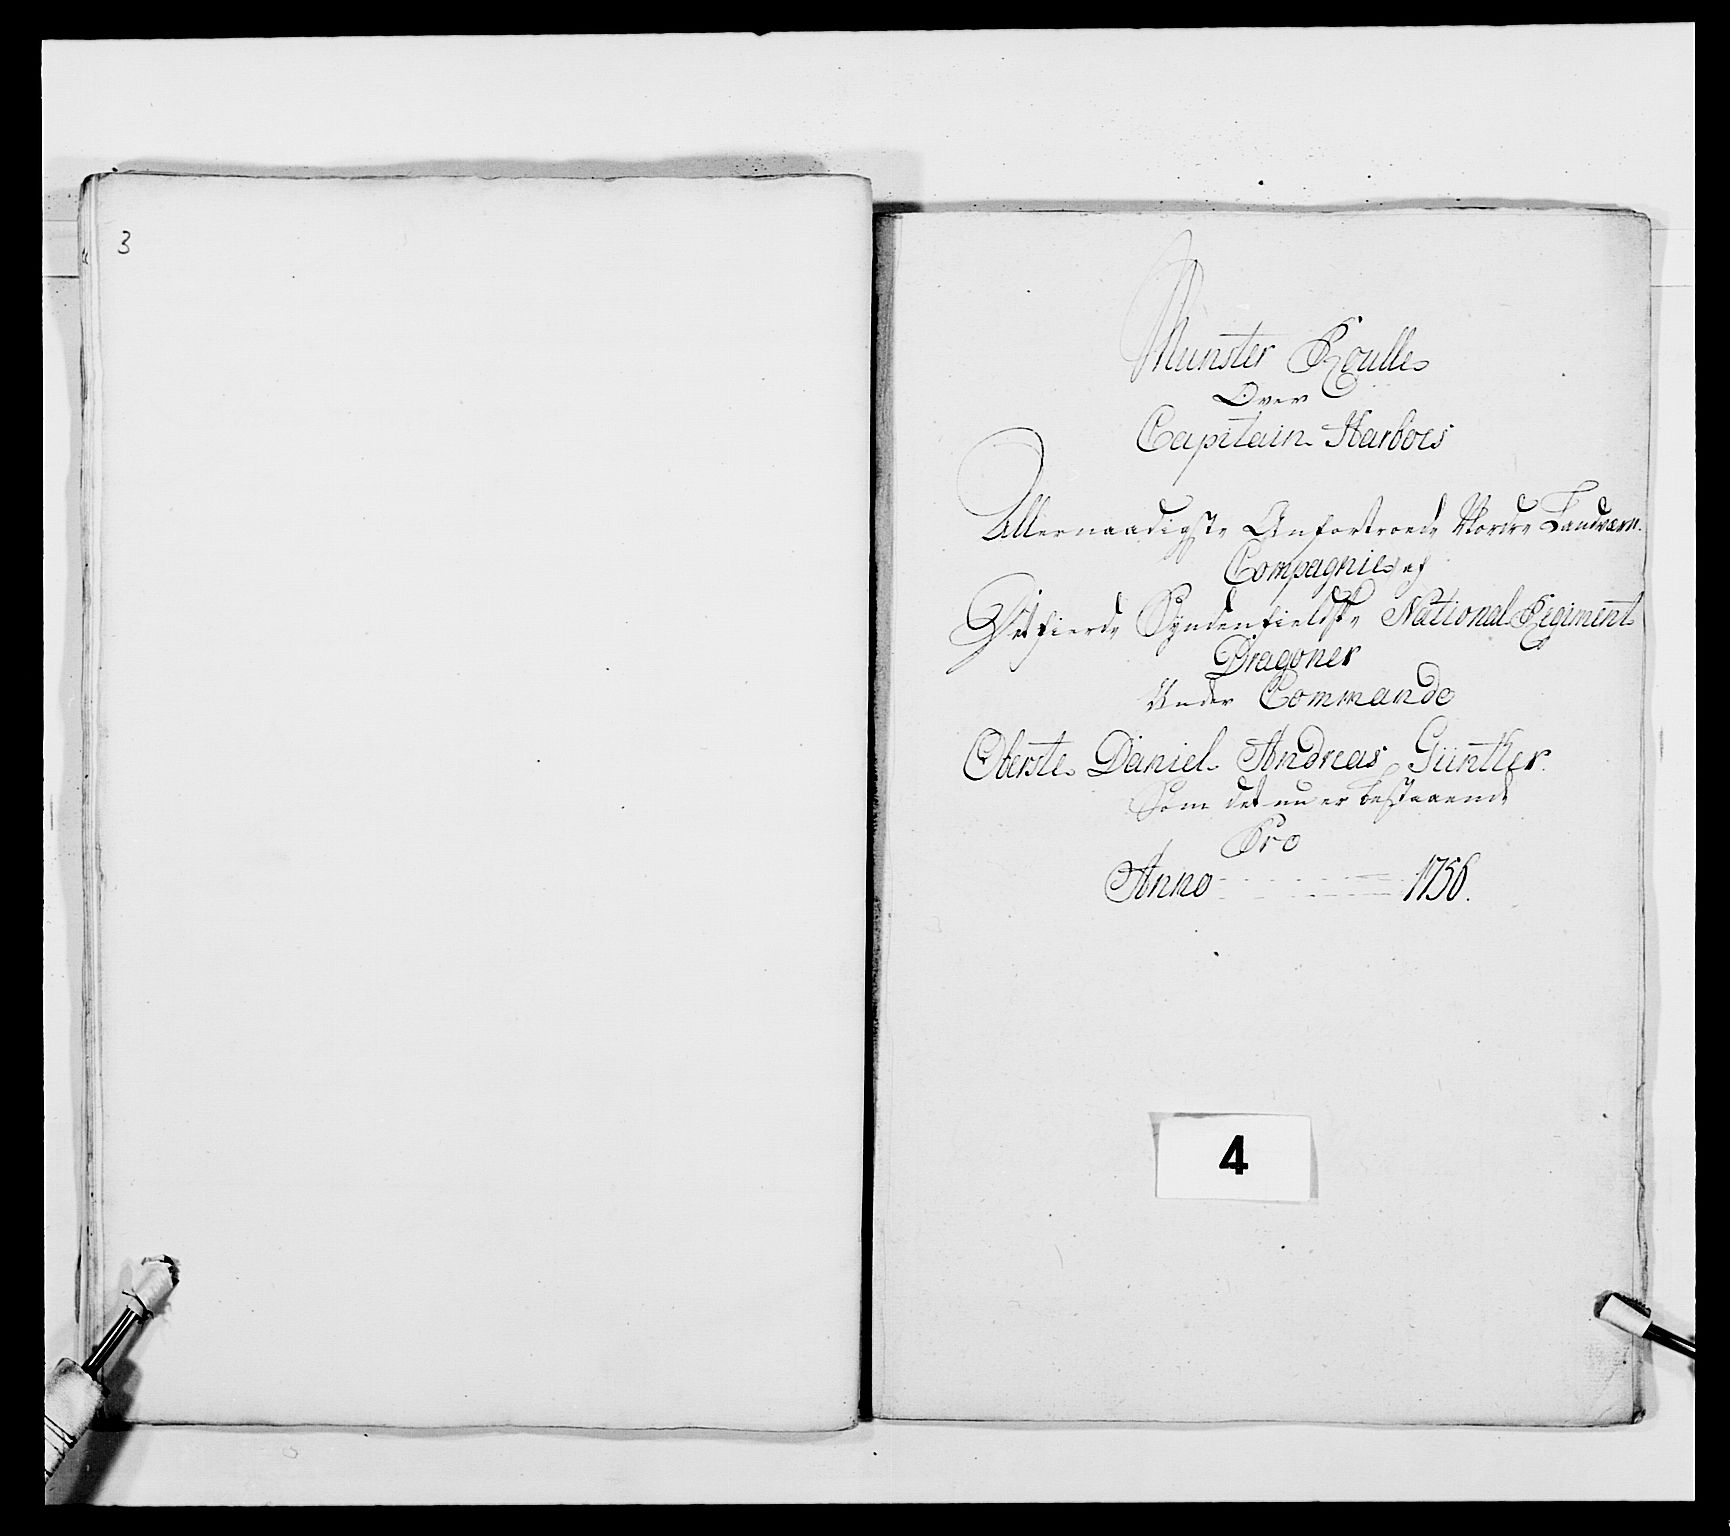 3
Munster Roulle
Over
Capitain Harboes
Allernaadigste Anfortroede Nordre Landværn
Compagnie af
Det fierde Syndenfieldske National Regiment
Dragoner
Under Commando
Oberste Daniel Andreas Günther.
Som det nu er bestaaende
Pro
Anno 1756.
4